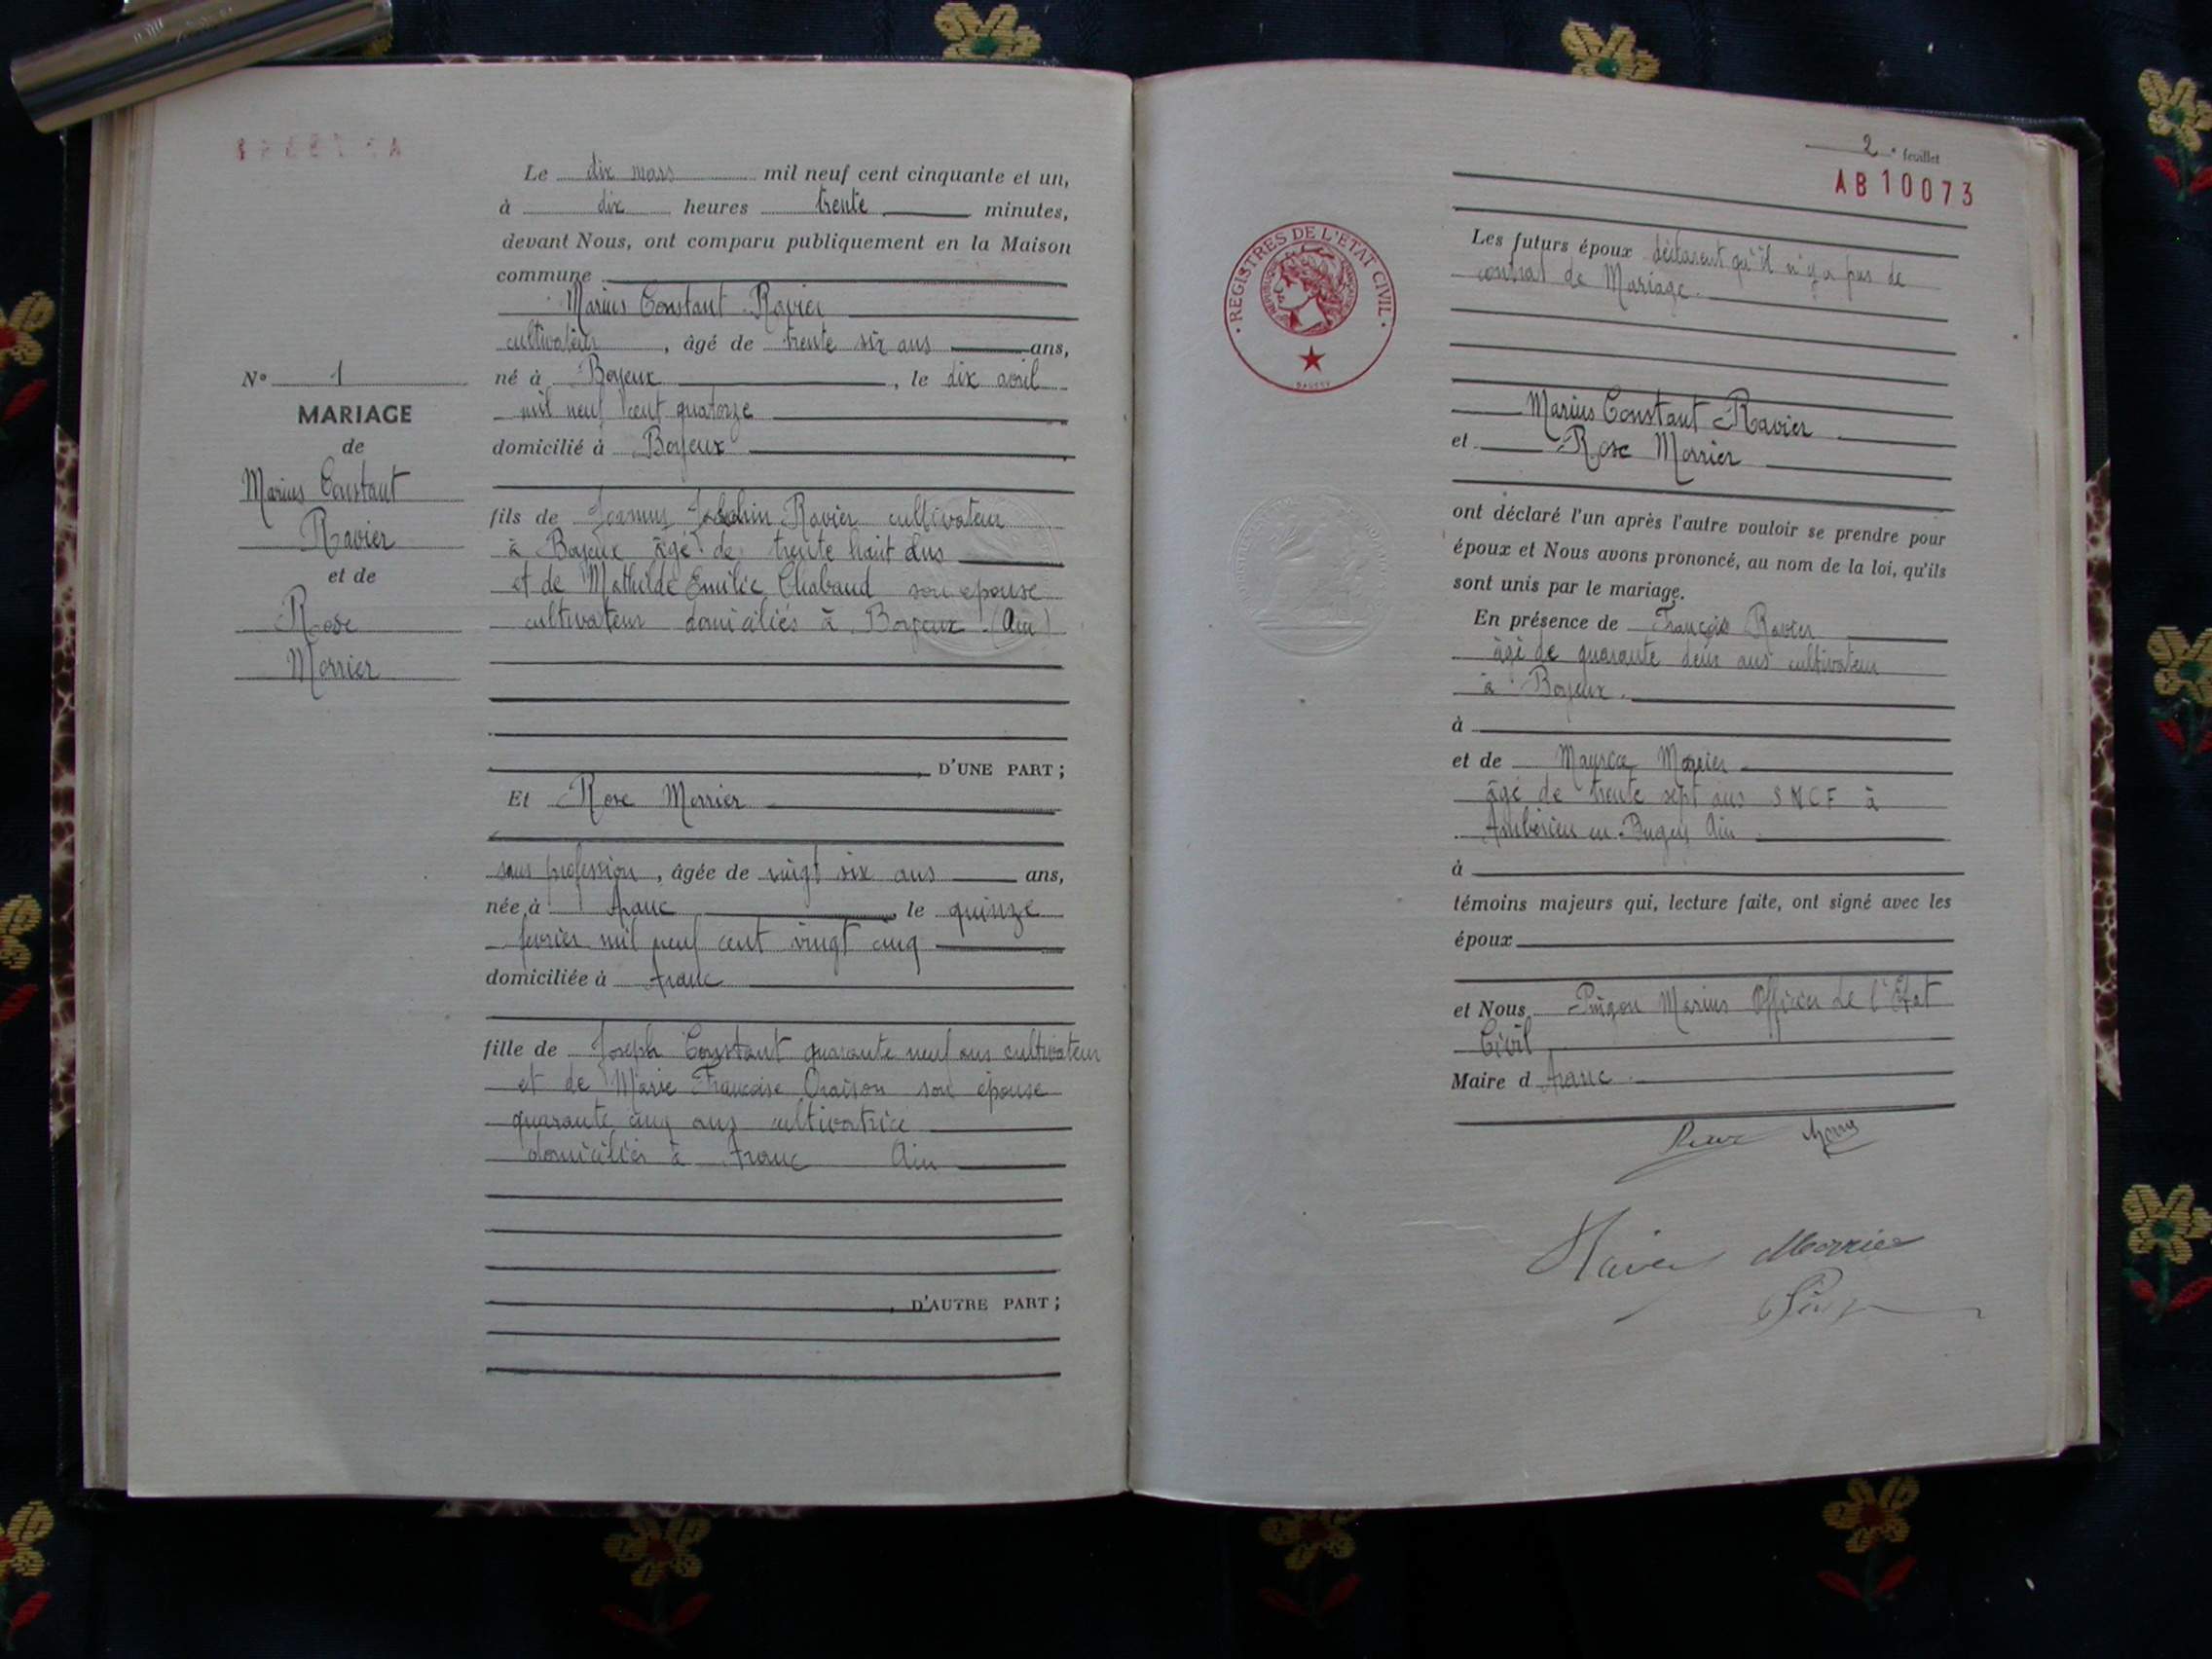 Le dix mars mil neuf cent cinquante et un,
à dix heures trente minutes,
devant Nous, ont comparu publiquement en la Maison
commune
Marius Constant Ravier
cultivateur, âgé de trente six ans ans,
né à Boyeux, le dix avril
mil neuf cent quatorze
domicilié à Boyeux
fils de Ravier cultivateur
à Boyeux âgé de
et de Mathilde Emilie Chabaud son epouse
cultivateur domiciliés à Boyeux (Ain)
D'UNE PART ;
Et Rose Morrier
sans profession, âgée de vingt six ans ans,
née à Aranc le quinze
fevrier mil neuf cent vingt cinq
domiciliée à Aranc
fille de Joseph Constant quarante neuf ans cultivateur
et de Marie Françoise Oraison son épouse
quarante cinq ans cultivatrice
domiciliés à Aranc Ain
D'AUTRE PART ;
N° 1
MARIAGE
de
Marius Constant
Ravier
et de
Rose
Morrier
2e feuillet
AB 10073
REGISTRES DE L'ETAT CIVIL
Les futurs époux déclarent qu'il n'y a pas de
contrat de Mariage.
Marius Constant Ravier
et Rose Morrier
ont déclaré l'un après l'autre vouloir se prendre pour
époux et Nous avons prononcé, au nom de la loi, qu'ils
sont unis par le mariage.
En présence de François Ravier
âgé de quarante deux ans cultivateur
à Boyeux.
à
et de
âgé de trente sept ans SNCF à
Ambérieu en Bugey Ain
à
témoins majeurs qui, lecture faite, ont signé avec les
époux
et Nous Marius Officier de l'Etat
Civil
Maire d Aranc.
Morrier